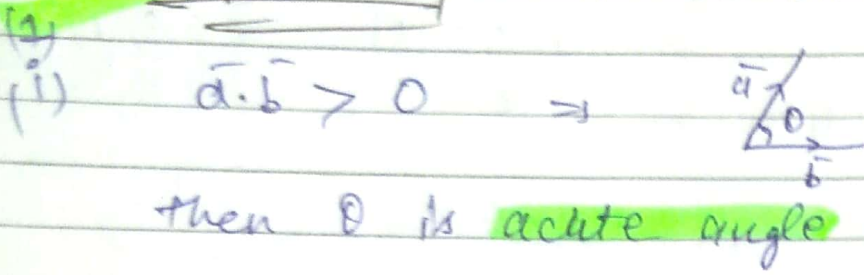 (2)
(i) a̅.b̅ > 0 ⇒ a̅ θ
b̅
then θ is acute angle